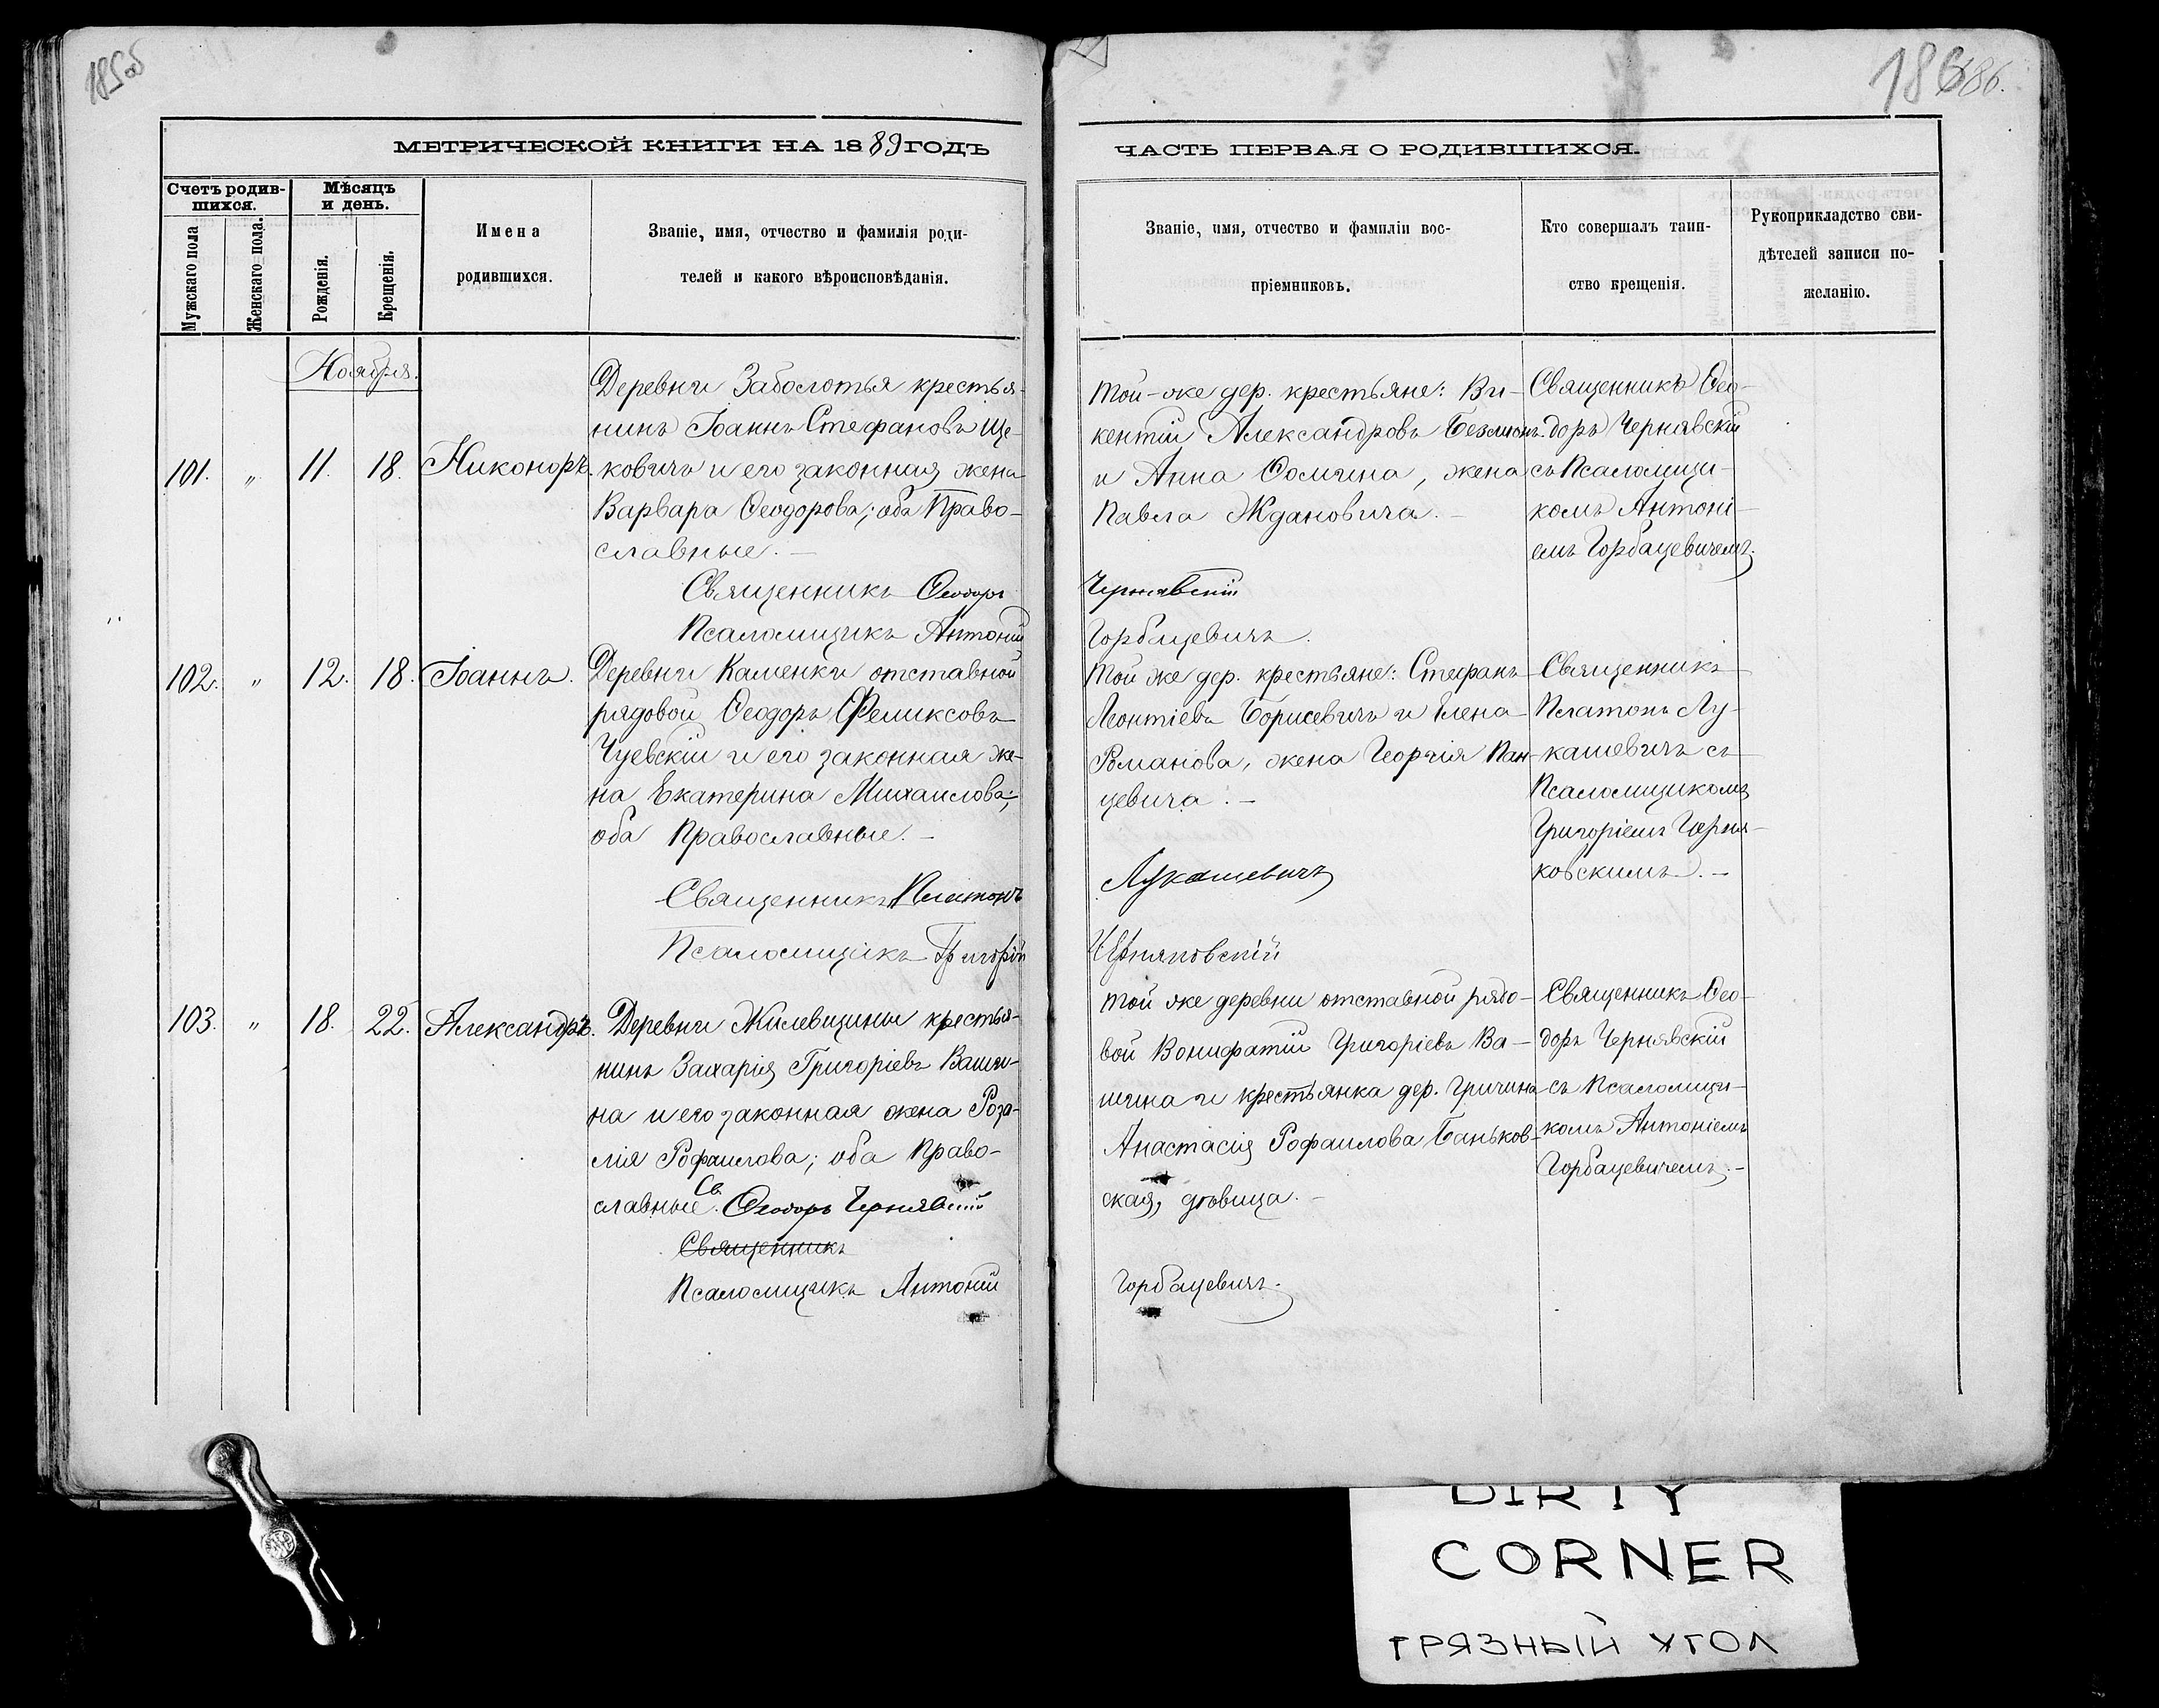 185об
186 186.
МЕТРИЧЕСКОЙ КНИГИ НА 1889 ГОДЪ
Счетъ родив-
шихся.
Мужскаго пола
Женскаго пола.
Мѣсяцъ
и день.
Рожденія.
Крещенія.
Имена
родившихся.
Званіе, имя, отчество и фамилія роди-
телей и какого вѣроисповѣданія.
Ноября.
101. " 11. 18. Никоноръ.
Деревни Заболотья крестья-
нинъ Іоаннъ Стефановъ Ще-
ковичъ и его законная жена
Варвара Ѳеодорова; оба Право-
славные. —
Священникъ Ѳеодоръ
Псаломщикъ Антоній
102. " 12. 18. Іоаннъ.
Деревни Каменки отставной
рядовой Ѳеодоръ Феликсовъ
Чуевскій и его законная же-
на Екатерина Михаилова;
оба Православные. —
Священникъ Платонъ
Псаломщикъ Григорій
103. " 18. 22. Александръ.
Деревни Жилевщины крестья-
нинъ Захарія Григоріевъ Ваши-
на и его законная жена Роза-
лія Рофаилова; оба Право-
славные. Св. Ѳеодоръ Чернявскій
Священникъ
Псаломщикъ Антоній
ЧАСТЬ ПЕРВАЯ О РОДИВШИХСЯ.
Званіе, имя, отчество и фамиліи вос-
пріемниковъ.
Кто совершалъ таин-
ство крещенія.
Рукоприкладство сви-
дѣтелей записи по-
желанію.
Той-же дер. крестьяне: Ви-
кентій Александровъ
и Анна Ѳомина, жена
Павла Ждановича. —
Священникъ Ѳео-
доръ Чернявскій
съ Псаломщи-
комъ Антоні-
емъ Горбацевичемъ.
Чернявскій
Горбацевичъ.
Той же дер. крестьяне: Стефанъ
Леонтіевъ Борисевичъ и Елена
Романова, жена Георгія Пан-
цевича. —
Священникъ
Платонъ Лу-
кашевичъ съ
Псаломщикомъ
Григоріемъ Черня-
ковскимъ. —
Лукашевичъ
Черняковскій
Той же деревни отставной рядо-
вой Вонифатій Григоріевъ Ва-
шина и крестьянка дер. Гричина
Анастасія Рофаилова Баньков-
ская, дѣвица. —
Священникъ Ѳео-
доръ Чернявскій
съ Псаломщи-
комъ Антоніемъ
Горбацевичемъ. —
Горбацевичъ.
DIRTY
CORNER
ГРЯЗНЫЙ УГОЛ